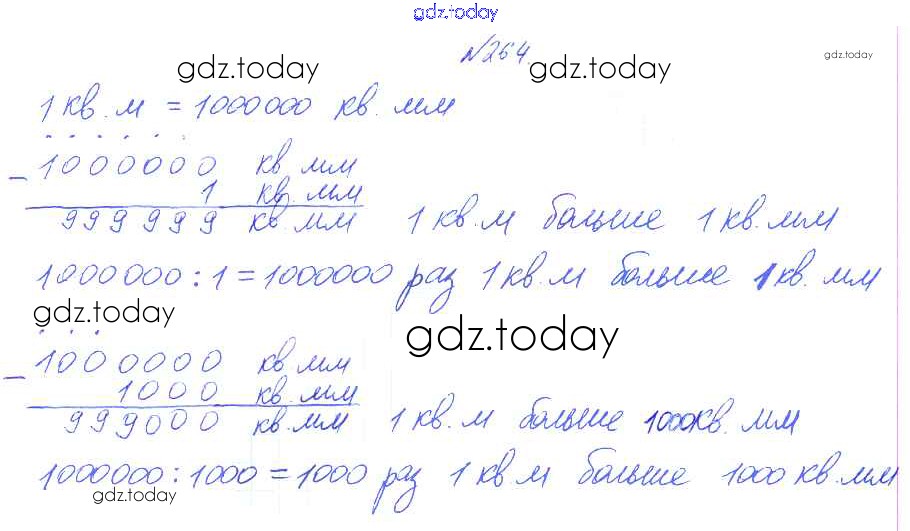 gdz.today
№264.
gdz.today gdz.today gdz.today
1 кв. м = 1000000 кв. мм
− 1000000 кв мм
1 кв. мм
999999 кв. мм 1 кв. м больше 1 кв. мм
1000000 : 1 = 1000000 раз 1 кв. м больше 1 кв. мм
gdz.today
gdz.today
− 1000000 кв. мм
1000 кв. мм
999000 кв. мм 1 кв. м больше 1000 кв. мм
1000000 : 1000 = 1000 раз 1 кв. м больше 1000 кв. мм
gdz.today